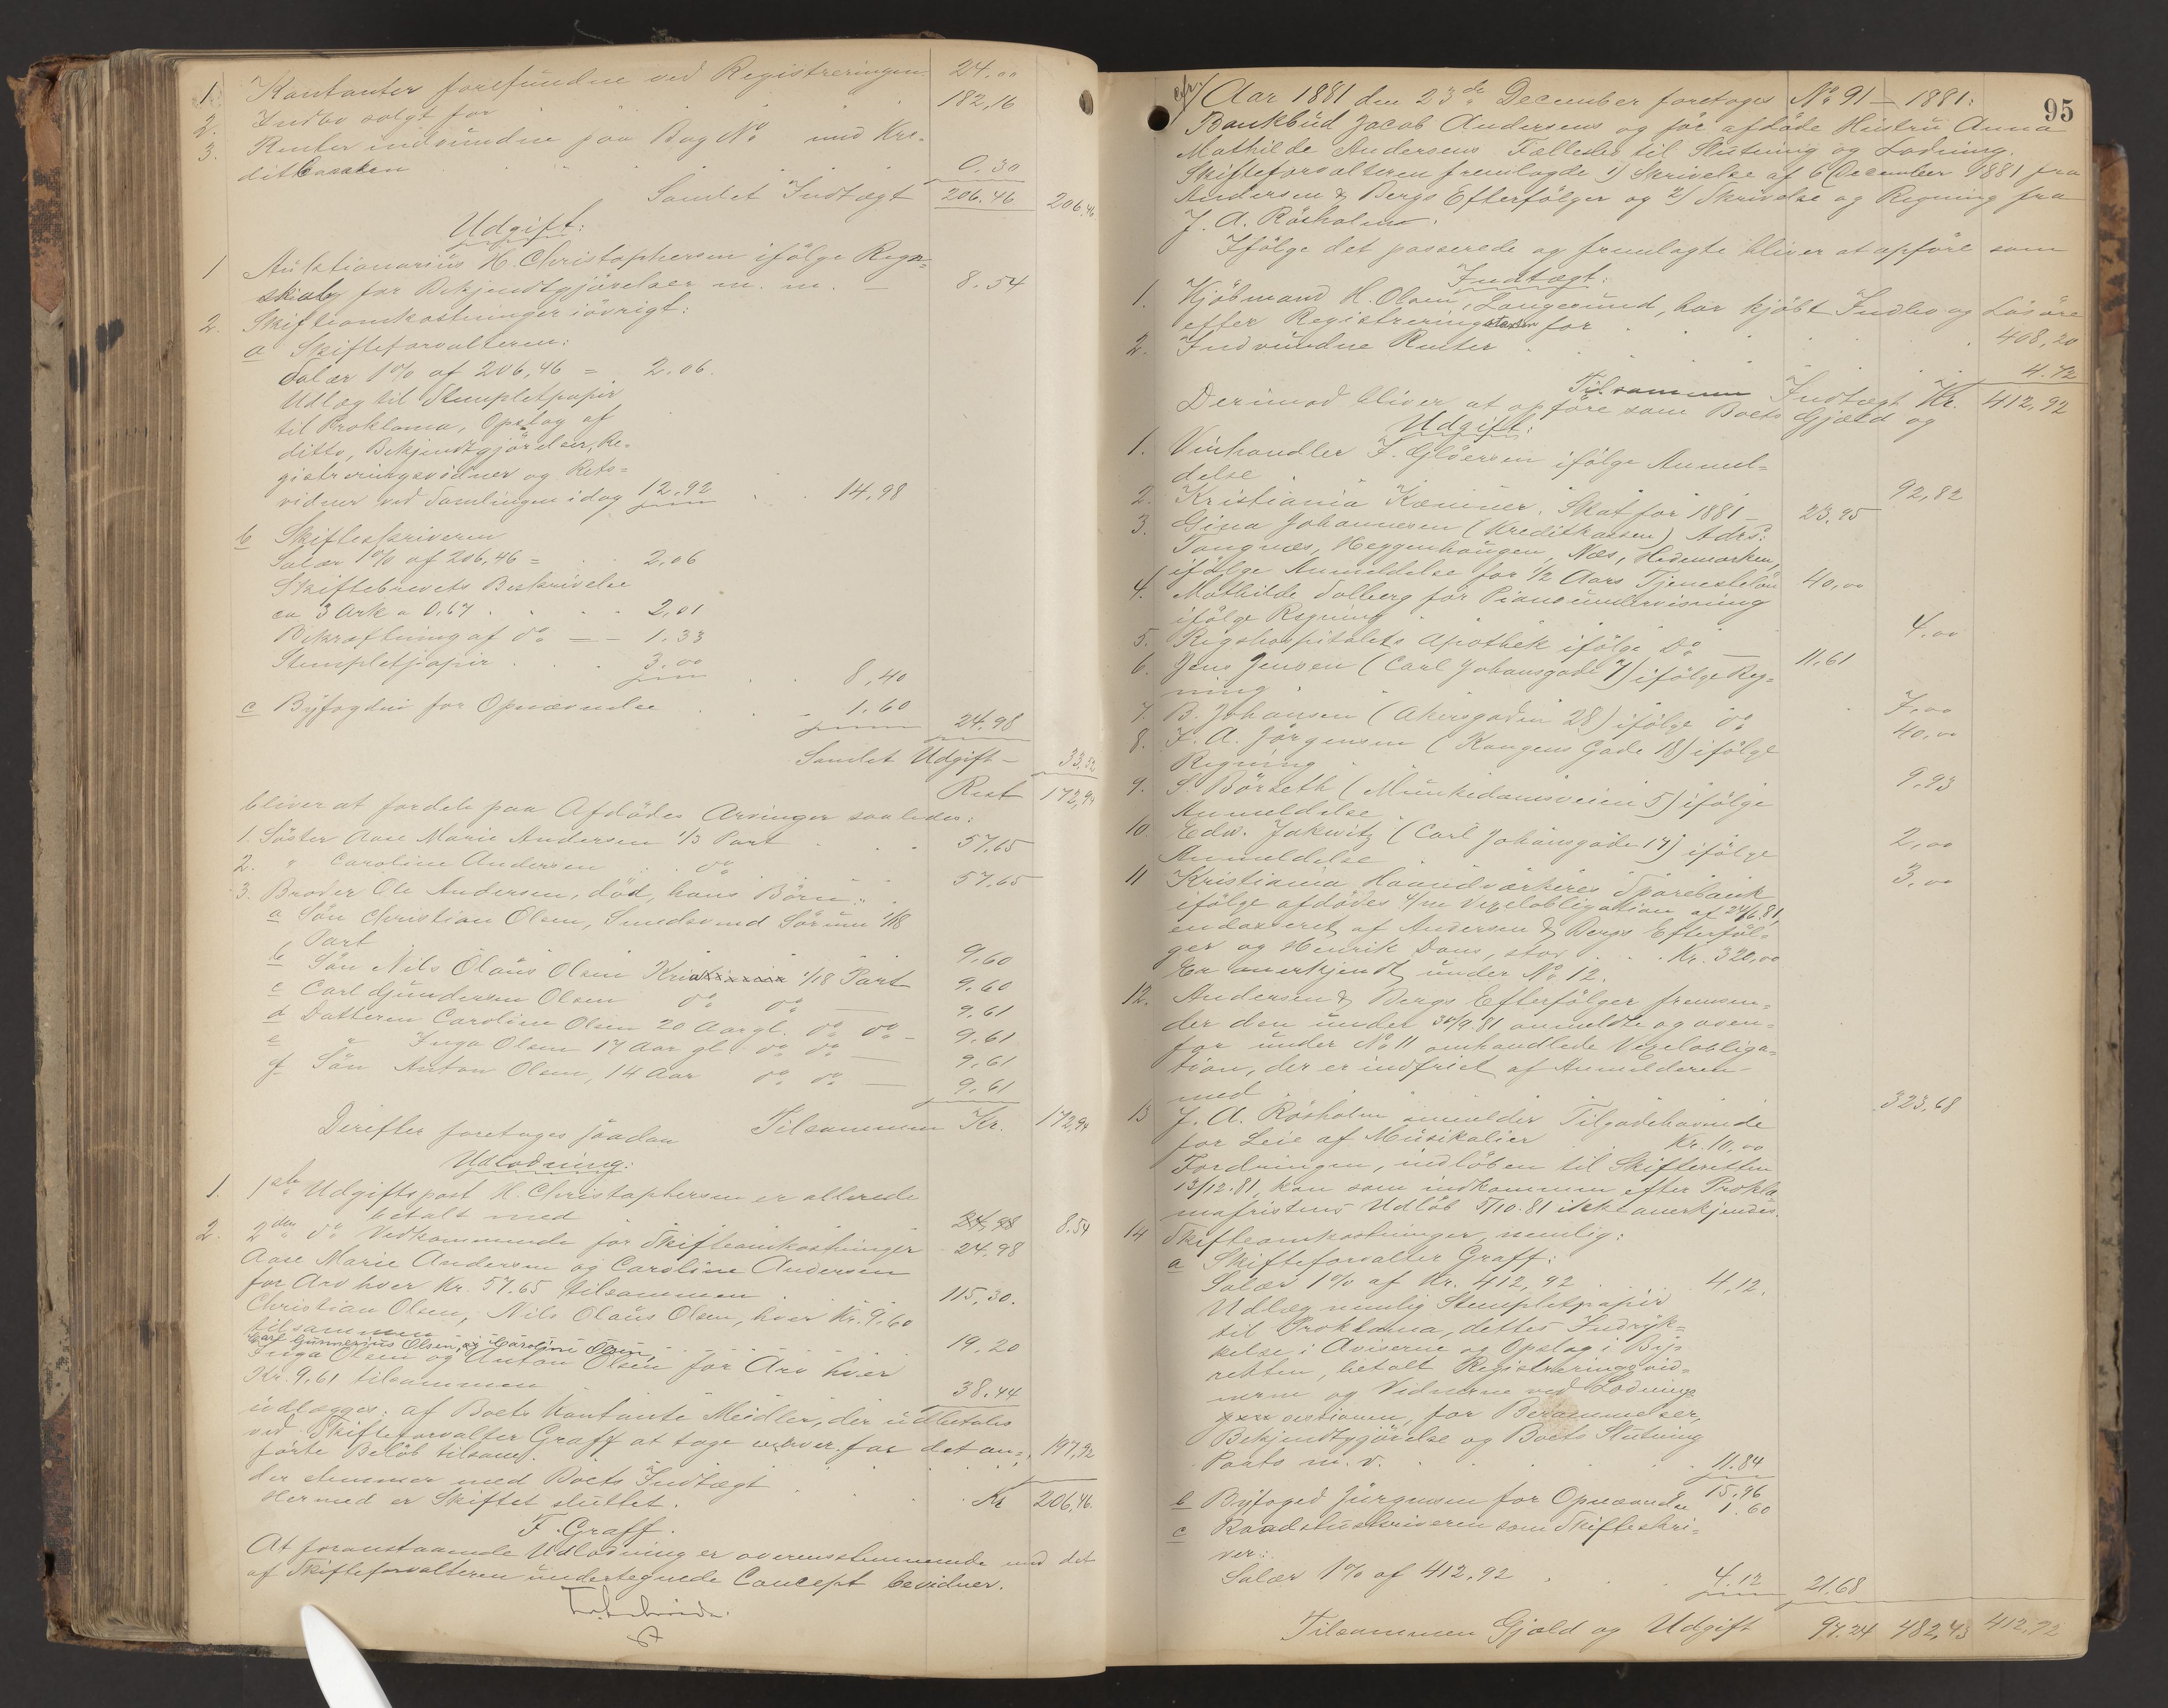 1. Kontanter forefundne ved Registreringen 24,00
2. Indbo solgt for 182,16
3. Renter indvundne paa Bog No med Kre-
ditkassen 0.30
Samlet Indtægt 206.46 206,46
Udgift:
1 Auktionarius H. Christophersen ifölge Regn-
skab for Bekjendtgjörelser m. m. — 8.54
2. Skifteomkostninger iövrigt:
a Skifteforvalteren:
Salær 1% af 206,46 = 2.06.
Udlæg til Stempletpapir
til Proklama, Opslag af
ditto, Bekjendtgjörelser, Re-
gistreringsvidner og Rets-
vidner ved Samlingen idag 12.92 14,98
b Skifteskriveren
Salær 1% af 206,46 = 2,06
Skiftebrevets Beskrivelse
ca 3 Ark a 0,67 2,01
Bekræftning af do — 1.33
Stempletpapir 3.00
8,40
c Byfogden for Opnævnelse 1.60
24.98
Samlet Udgift — 33.52
Rest 172,94
bliver at fordele paa Afdödes Arvinger saaledes:
1. Söster Aase Marie Andersen 1/3 Part 57.65
2. " Caroline Andersen do 57.65
3. Broder Ole Andersen, död, hans Börn:
a Sön Christian Olsen, Sundsvold Sörum 1/18
Part 9.60
b Sön Nils Olaus Olsen 1/18 Part 9.60
c Carl Gundersen Olsen do do — 9.61
d Datteren Caroline Olsen 20 Aar gl. do do — 9.61
e " Inga Olsen 17 Aar gl. do do — 9.61
f Sön Anton Olsen, 14 Aar do do — 9.61
Tilsammen Kr. 172,94
Derefter foretages saadan
Udlodning:
1. 1ste Udgiftspost H. Christophersen er allerede
betalt med 8.54
2. 2den do Vedkommende for Skifteomkostninger 24.98
Aase Marie Andersen og Caroline Andersen
for Arv hver Kr. 57.65 tilsammen 115,30.
Christian Olsen, Nils Olaus Olsen, hver Kr. 9.60
tilsammen 19.20
Carl Gunnerius Olsen, og Caroline Olsen,
Inga Olsen og Anton Olsen for Arv hver
Kr. 9.61 tilsammen 38.44
udlægges: af Boets kontante Midler, der udbetales
ved Skifteforvalter Graff at tage enhver for det an-
förte Belöb tilsam. 197,92
der stemmer med Boets Indtægt Kr 206,46.
Hermed er Skiftet sluttet.
F. Graff.
At foranstaaende Udlodning er overensstemmende med det
af Skifteforvalteren undertegnede Concept bevidner.
95
Aar 1881 den 23de December foretoges No 91 — 1881:
Bankbud Jacob Andersens og för afdöde Hustru Anna
Mathilde Andersens Fællesbo til Slutning og Lodning.
Skifteforvalteren fremlagde 1) Skrivelse af 6 December 1881 fra
Andersen & Bergs Efterfölger og 2) Skrivelse og Regning fra
J. A. Rösholm.
Ifölge det passerede og fremlagte bliver at opföre som
Indtægt:
1. Kjöbmand H. Olsen, Langesund, har kjöbt Indbo og Lösöre
efter Registreringstaxten for 408,20
2. Indvundne Renter 4.72
Tilsammen Indtægt Kr. 412,92
Derimod bliver at opföre som Boets Gjæld og
Udgift:
1. Vinhandler F. Glöersen ifölge Anmel-
delse 92,82
2. Kristiania Kæmner. Skat for 1881 — 23,95
3. Gina Johannesen (Kreditkassen) Adrs:
Tangnes, Heggenhaugen, Næs, Hedemarken,
ifölge Anmeldelse for 1/2 Aars Tjenestelön 40,00
4. Mathilde Solberg for Pianoundervisning
ifölge Regning 4,00
5. Rigshospitalets Apothek ifölge Do — 11.61
6. Jens Jensen (Carl Johansgade 7) ifölge Reg-
ning 7,00
7. B. Johansen (Akersgaden 28) ifölge do 40,00
8. F. A. Jörgensen (Kongens Gade 18) ifölge
Regning 9,93
9. S. Börseth (Munkedamsveien 5) ifölge
Anmeldelse 2,00
10. Edw. Jakwitz (Carl Johansgade 17) ifölge
Anmeldelse 3,00
11 Kristiania Haandværkeres Sparebank
ifölge afdödes 4/m Vexelobligation af 24/6 81,
endosseret af Andersen & Bergs Efterföl-
ger og Henrik Dons, stor Kr. 320,00
Er anerkjendt under No 12.
12. Andersen & Bergs Efterfölger fremsen-
der den under 30/9.81 anmeldte og oven-
for under No 11 omhandlede Vexelobliga-
tion, der er indfriet af Anmelderen
med 323,68
13 J. A. Rösholm anmelder Tilgodehavende
for Leie af Musikalier Kr. 10,00
Fordringen, indlöben til Skifteretten
13/12.81, kan som indkommen efter Prokla-
mafristens Udlöb 5/10.81 ikke anerkjendes.
14 Skifteomkostninger, nemlig:
a Skifteforvalter Graff:
Salær 1% af Kr. 412,92 4,12.
Udlæg nemlig Stempletpapir
til Proklama, dettes Indryk-
kelse i Aviserne og Opslag i By-
retten, betalt Registreringsvid-
nerne og Vidnerne ved Lodnings
sessionen, for Berammelser,
Bekjendtgjörelse og Boets Slutning
Porto m.v. 11.84
15,96
b Byfoged Jürgensen for Opnævnelse 1.60
c Raadstuskriveren som Skifteskri-
ver:
Salær 1% af 412.92 4.12 21.68
Tilsammen Gjæld og Udgift 97.24 482,43 412.92